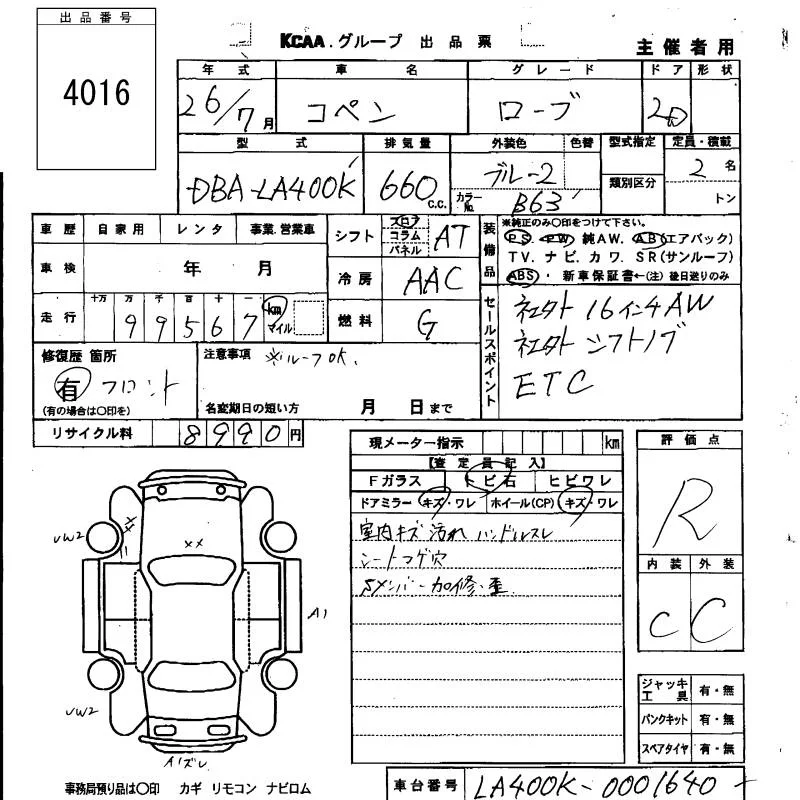 出品番号
4016
KCAA.グループ 出品票
主催者用
年式 車名 グレード ドア 形状
26/7月 コペン ローブ 2D
型式 排気量 外装色 色替 型式指定 定員・積載
DBA-LA400K 660 c.c. ブルー2 2名
カラーNo. B63 類別区分 トン
車歴 自家用 レンタ 事業.営業車
シフト フロア コラム パネル AT
装備品
※純正のみ〇印をつけて下さい。
PS・PW 純AW. AB(エアバック)
TV. ナビ. カワ. SR(サンルーフ)
ABS・新車保証書←(注)後日送りのみ
車検 年 月
冷房 AAC
走行 十万 万 千 百 十 一
99567 km マイル
燃料 G
セールスポイント
社外 16インチAW
社外 シフトノブ
ETC
修復歴 箇所
有 フロント
(有の場合は〇印を)
注意事項 ※ルーフOK.
名変期日の短い方 月 日まで
リサイクル料 8990円
現メーター指示 km
【査定員記入】
Fガラス トビ石 ヒビワレ
ドアミラー キズ・ワレ ホイール(CP) キズ・ワレ
室内キズ 汚れ ハンドルスレ
シートコゲ穴
Sメンバー加修・歪
評価点
R
内装 外装
C C
XX
XX
A1
A1ズレ
ジャッキ工具 有・無
パンクキット 有・無
スペアタイヤ 有・無
事務局預り品は〇印 カギ リモコン ナビロム
車台番号 LA400K-0001640